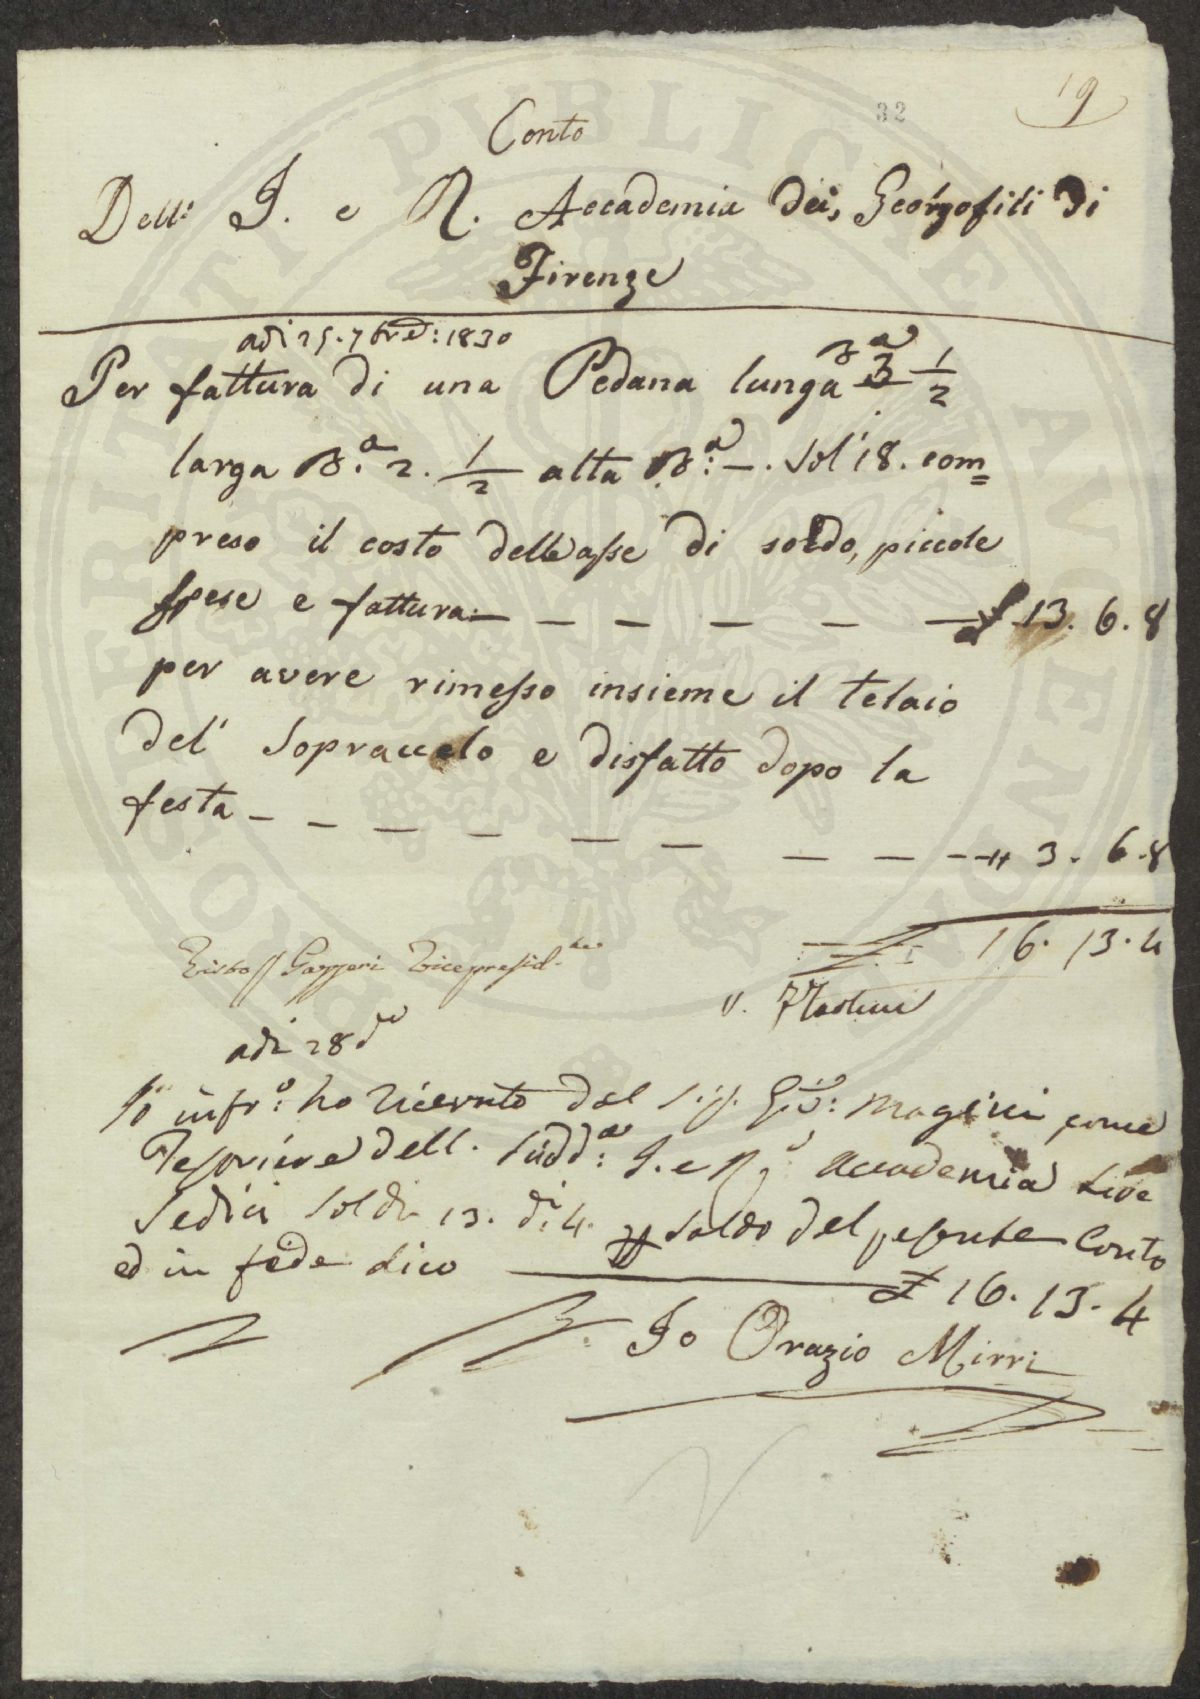 32
19
Conto
Dell' I. e R. Accademia dei Georgofili di
Firenze
adi 25. 7bre: 1830
Per fattura di una Pedana lunga Ba 3 1/2
larga B.a 2. 1/2 alta B:a —. Sol' 18. com=
preso il costo delle asse di soldo, piccole
spese e fattura — — — — — — £ 13. 6. 8
per avere rimesso insieme il telaio
del' Sopraccelo e disfatto dopo la
festa — — — — — — — — — " 3. 6. 8
£ 16. 13. 4
Visto Gazzeri Vicepresid.te
V.
adi 28 do
Io infr:o ho ricevuto dal Sig. Gio: Magini come
Tesoriere dell. Sudd:a I. e R. Accademia Lire
Sedici Soldi 13. di 4. p Saldo del presente Conto
ed in fede dico — £ 16. 13. 4
Io Orazio Mirri
PVBLICAE